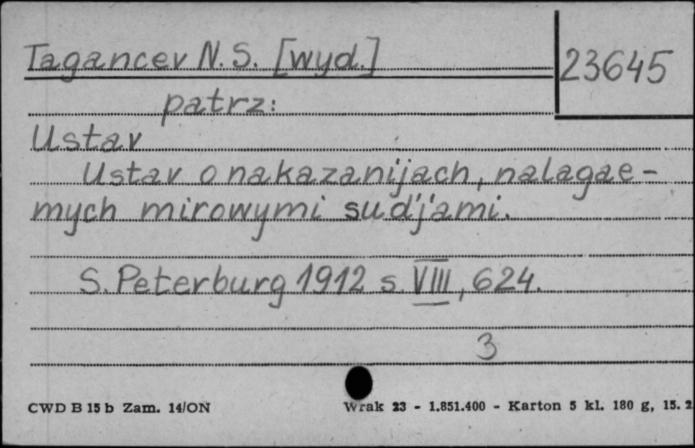 Tagancev N. S. [wyd.]
23645
patrz:
Ustav
Ustav o nakazanijach, nalagae-
mych mirowymi sud'jami.
S. Peterburg 1912 s. VIII, 624.
3
CWD B 15 b Zam. 14/ON
Wrak 23 - 1.851.400 - Karton 5 kl. 180 g, 15. 2